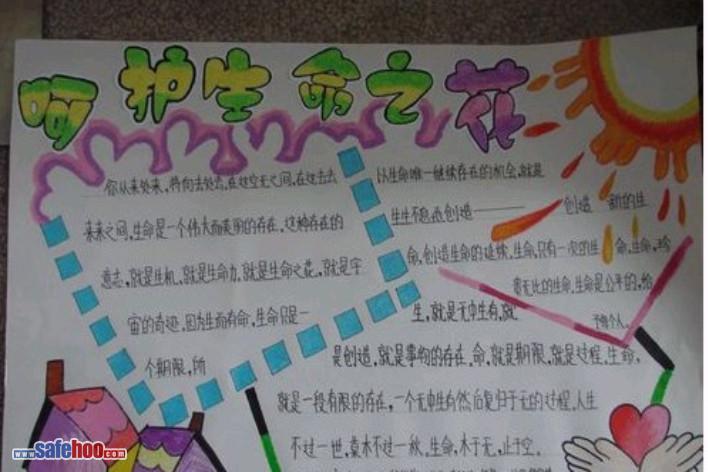 呵护生命之花
你从来处来,将向去处去,在这空无之间,在这去去
来来之间,生命是一个伟大而美丽的存在,这种存在的
意志,就是生机,就是生命力,就是生命之花,就是宇
宙的奇迹,因为生而有命,生命只是一
个期限,所
以生命唯一继续存在的机会,就是
生生不息,而创造——创造一新的生
命,创造生命的延续,生命只有一次的生命,生命,珍
贵无比的生命,生命是公平的,给
予每个人。
生,就是无中生有,就
是创造,就是事物的存在,命,就是期限,就是过程,生命,
就是一段有限的存在,一个无中生有然后复归于无的过程,人生
不过一世,草木不过一秋,生命,本于无,止于空。
www.safehoo.com